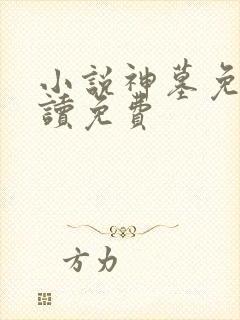 小說神墓免
讀免費
方力